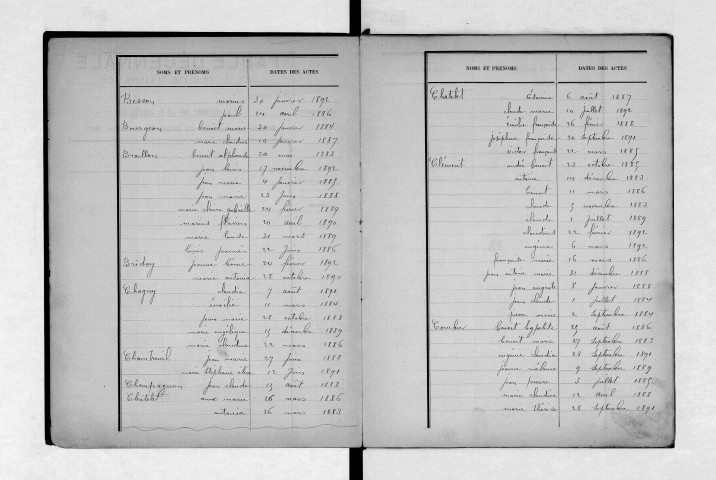 NOMS ET PRÉNOMS DATES DES ACTES
Besson marius 30 janvier 1892
paul 24 avril 1886
Bourgeon benoit marie 30 janvier 1884
marie claudine 10 janvier 1887
Braillon benoit alphonse 20 mai 1883
jean louis 17 novembre 1892
jean marie 4 janvier 1885
jean marie 23 juin 1888
marie claire 24 février 1889
marius 20 avril 1890
marie louise 31 mars 1889
louis 22 juin 1886
Briday jeanne 24 février 1892
marie antonia 28 octobre 1890
Chagny claudia 7 août 1891
11 mars 1884
jean marie 28 octobre 1888
marie angélique 15 décembre 1889
marie claudine 22 mars 1886
Chantreuil jean marie 27 juin 1888
marie stéphanie 12 juin 1891
Champagnon jean claude 15 août 1883
Chatelet marie 26 mars 1886
antonia 26 mars 1883
NOMS ET PRÉNOMS DATES DES ACTES
Chatelet 6 août 1887
claude marie 10 juillet 1892
émilie françoise 26 février 1888
joséphine françoise 20 septembre 1891
victor françois 22 mars 1885
Clément andré benoit 23 octobre 1885
antoine 14 décembre 1883
benoit 11 mars 1886
claude 5 novembre 1883
claude 1 juillet 1889
claudius 22 février 1892
eugénie 6 mars 1892
françoise marie 16 mars 1886
jean antoine marie 31 décembre 1888
jean auguste 8 janvier 1888
jean claude 1 juillet 1884
jeanne marie 2 septembre 1884
benoit hypolite 25 août 1886
benoit marie 27 septembre 1883
eugenie claudia 23 septembre 1891
jeanne 9 septembre 1889
jean pierre 3 juillet 1885
marie claudine 12 avril 1888
marie 28 septembre 1891